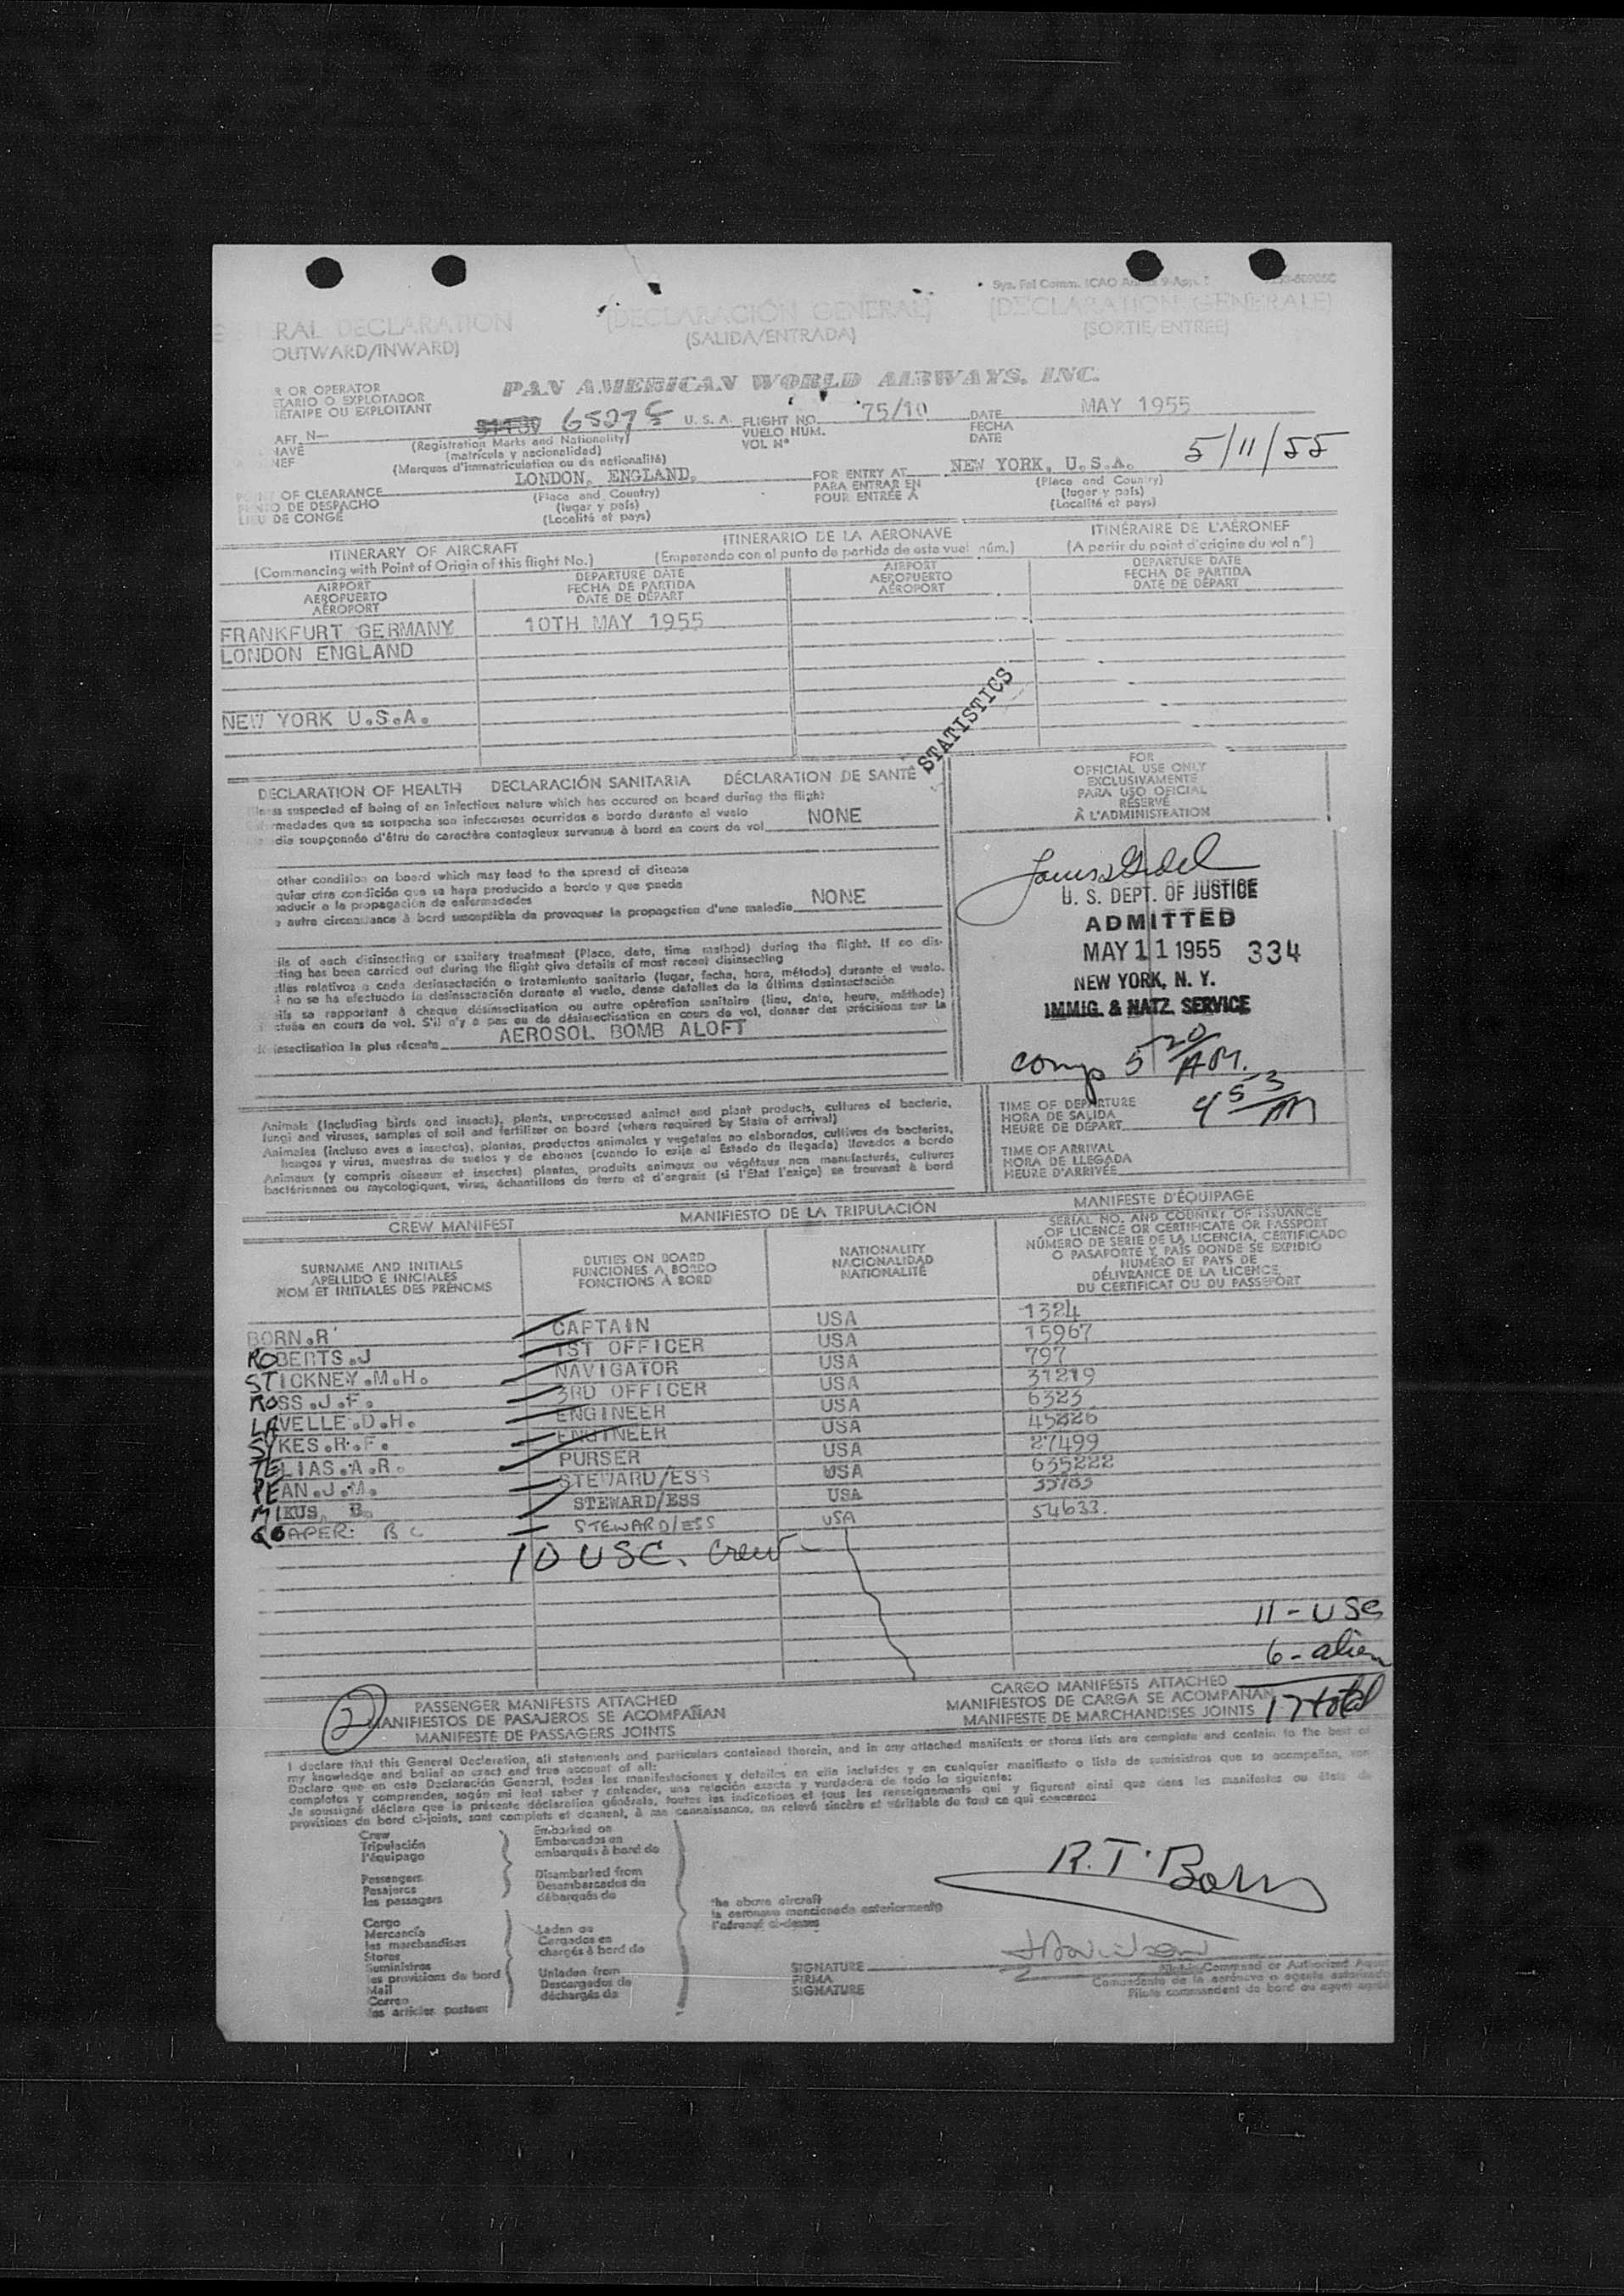 Sys. Fol Comm. ICAO Annex 9-App. 1
RAL DECLARATION (DECLARACIÓN GENERAL) (DECLARATION GENERALE)
OUTWARD/INWARD) (SALIDA/ENTRADA) (SORTIE/ENTREE)
R OR OPERATOR
ETARIO O EXPLOTADOR
IÉTAIRE OU EXPLOITANT
PAN AMERICAN WORLD AIRWAYS, INC.
AFT N— 6527 C U. S. A. FLIGHT NO. 75/10 DATE MAY 1955
NAVE (Registration Marks and Nationality) VUELO NUM. FECHA
NEF (matrícula y nacionalidad) VOL Nº DATE 5/11/55
(Marques d'immatriculation ou de nationalité)
OF CLEARANCE LONDON, ENGLAND, FOR ENTRY AT NEW YORK, U.S.A.
DE DESPACHO (Place and Country) PARA ENTRAR EN (Place and Country)
DE CONGÉ (lugar y país) POUR ENTRÉE À (lugar y país)
(Localité et pays) (Localité et pays)
ITINERARY OF AIRCRAFT ITINERARIO DE LA AERONAVE ITINÉRAIRE DE L'AÉRONEF
(Commencing with Point of Origin of this flight No.) (Empezando con el punto de partida de este vuel núm.) (A partir du point d'origine du vol nº)
AIRPORT DEPARTURE DATE AIRPORT DEPARTURE DATE
AEROPUERTO FECHA DE PARTIDA AEROPUERTO FECHA DE PARTIDA
AÉROPORT DATE DE DÉPART AÉROPORT DATE DE DÉPART
FRANKFURT GERMANY 10TH MAY 1955
LONDON ENGLAND
NEW YORK U.S.A.
STATISTICS
DECLARATION OF HEALTH DECLARACIÓN SANITARIA DÉCLARATION DE SANTÉ
suspected of being of an infectious nature which has occured on board during the flight
medades que se sospecha son infecciosas ocurridas a bordo durante el vuelo NONE
die soupçonnée d'être de caractère contagieux survenue à bord en cours de vol
other condition on board which may lead to the spread of disease
quier otra condición que se haya producido a bordo y que pueda
nducir a la propagación de enfermedades NONE
autre circonstance à bord susceptible de provoquer la propagation d'une maladie
ils of each disinsecting or sanitary treatment (Place, date, time method) during the flight. If no dis-
cting has been carried out during the flight give details of most recent disinsecting
alles relativos a cada desinsectación o tratamiento sanitario (lugar, fecha, hora, método) durante el vuelo.
i no se ha efectuado la desinsectación durante el vuelo, dense detalles de la última desinsectación
ils se rapportant à chaque désinsectisation ou autre opération sanitaire (lieu, date, heure, méthode)
ctuée en cours de vol. S'il n'y a pas eu de désinsectisation en cours de vol, donner des précisions sur la
insectisation la plus récente AEROSOL BOMB ALOFT
FOR
OFFICIAL USE ONLY
EXCLUSIVAMENTE
PARA USO OFICIAL
RÉSERVÉ
À L'ADMINISTRATION
U. S. DEPT. OF JUSTICE
ADMITTED
MAY 11 1955 334
NEW YORK, N. Y.
IMMIG. & NATZ. SERVICE
comp 5 20 AM.
Animals (Including birds and insects), plants, unprocessed animal and plant products, cultures of bacteria,
fungi and viruses, samples of soil and fertilizer on board (where required by State of arrival)
Animales (incluso aves e insectos), plantas, productos animales y vegetales no elaborados, cultivos de bacterias,
hongos y virus, muestras de suelos y de abonos (cuando lo exija el Estado de llegada) llevados a bordo
Animaux (y compris oiseaux et insectes) plantes, produits animaux ou végétaux non manufacturés, cultures
bactériennes ou mycologiques, virus, échantillons de terre et d'engrais (si l'État l'exige) se trouvant à bord
TIME OF DEPARTURE
HORA DE SALIDA
HEURE DE DÉPART
4 53 AM
TIME OF ARRIVAL
HORA DE LLEGADA
HEURE D'ARRIVÉE
CREW MANIFEST MANIFIESTO DE LA TRIPULACIÓN MANIFESTE D'ÉQUIPAGE
SURNAME AND INITIALS
APELLIDO E INICIALES
NOM ET INITIALES DES PRÉNOMS
DUTIES ON BOARD
FUNCIONES A BORDO
FONCTIONS À BORD
NATIONALITY
NACIONALIDAD
NATIONALITÉ
SERIAL NO. AND COUNTRY OF ISSUANCE
OF LICENCE OR CERTIFICATE OR PASSPORT
NÚMERO DE SERIE DE LA LICENCIA, CERTIFICADO
O PASAPORTE Y PAÍS DONDE SE EXPIDIÓ
NUMÉRO ET PAYS DE
DÉLIVRANCE DE LA LICENCE,
DU CERTIFICAT OU DU PASSEPORT
BORN.R CAPTAIN USA 1324
ROBERTS.J 1ST OFFICER USA 15967
STICKNEY.M.H. NAVIGATOR USA 797
ROSS.J.F. 3RD OFFICER USA 31219
LAVELLE.D.H. ENGINEER USA 6323
SYKES.R.F. ENGINEER USA 45226
TELIAS.A.R. PURSER USA 27499
PEAN.J.M. STEWARD/ESS USA 635222
MIKUS, B. STEWARD/ESS USA 35783
GOAPER: B C STEWARD/ESS USA 54633.
10 USC. crew
11 - USC
6 - alien
17 total
2
PASSENGER MANIFESTS ATTACHED CARGO MANIFESTS ATTACHED
MANIFIESTOS DE PASAJEROS SE ACOMPAÑAN MANIFIESTOS DE CARGA SE ACOMPAÑAN
MANIFESTE DE PASSAGERS JOINTS MANIFESTE DE MARCHANDISES JOINTS
I declare that this General Declaration, all statements and particulars contained therein, and in any attached manifests or stores lists are complete and contain to the best of
my knowledge and belief an exact and true account of all:
Declaro que en esta Declaración General, todas las manifestaciones y detalles en ella incluídos y en cualquier manifiesto o lista de suministros que se acompañan, son
completos y comprenden, según mi leal saber y entender, una relación exacta y verdadera de todo lo siguiente:
Je soussigné déclare que la présente déclaration générale, toutes les indications et tous les renseignements qui y figurent ainsi que dans les manifestes ou états de
provisions de bord ci-joints, sont complets et donnent, à ma connaissance, un relevé sincère et véritable de tout ce qui concerne:
Crew
Tripulación
l'équipage
Passengers
Pasajeros
les passagers
Embarked on
Embarcados en
embarqués à bord de
Disembarked from
Desembarcados de
débarqués de
Cargo
Mercancía
les marchandises
Stores
Suministros
les provisions de bord
Mail
Correo
les articles postaux
Laden on
Cargados en
chargés à bord de
Unladen from
Descargados de
déchargés de
the above aircraft
la aeronave mencionada anteriormente
l'aéronef ci-dessus
R.T. Born
SIGNATURE
FIRMA
SIGNATURE
Pilot in Command or Authorized Agent
Comandante de la aeronave o agente autorizado
Pilote commandant de bord ou agent agréé